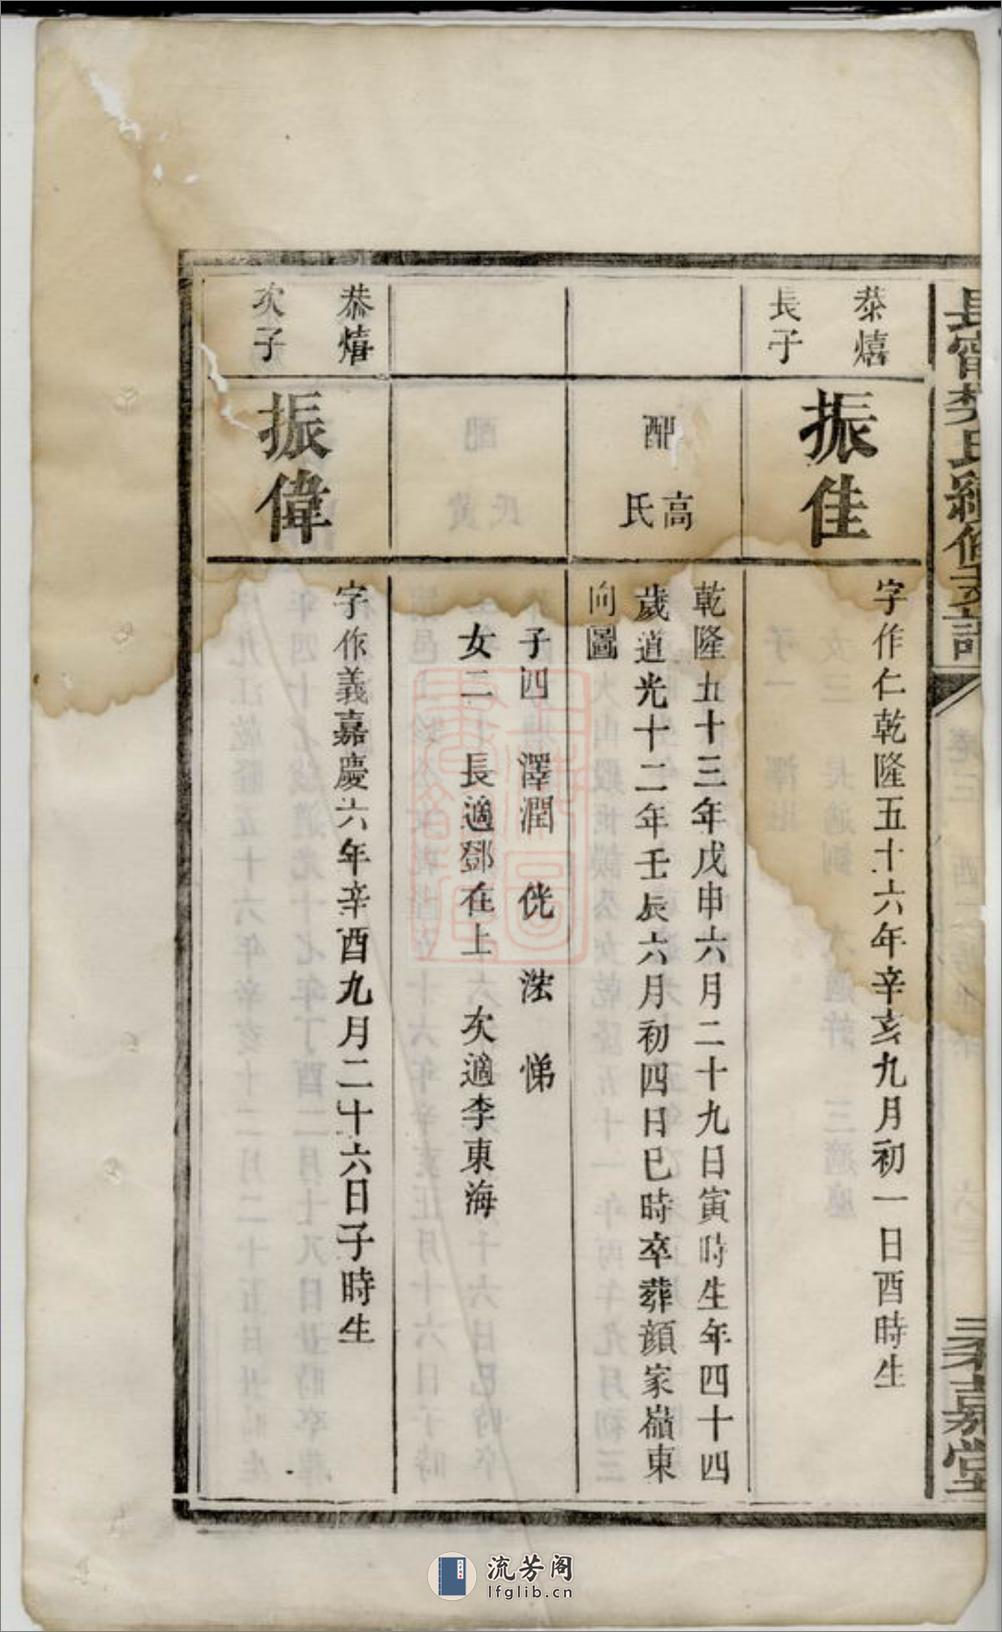 泰熺
長子
振佳
字作仁乾隆五十六年辛亥九月初一日酉時生
配
高氏
乾隆五十三年戊申六月二十九日寅時生年四十四
歲道光十二年壬辰六月初四日巳時卒葬顔家嶺東
向圖
子四 澤潤 侊 浤 悌
女二 長適鄧在上 次適李東海
恭熺
次子
振偉
字作義嘉慶六年辛酉九月二十六日子時生
流芳阁
lfglib.cn